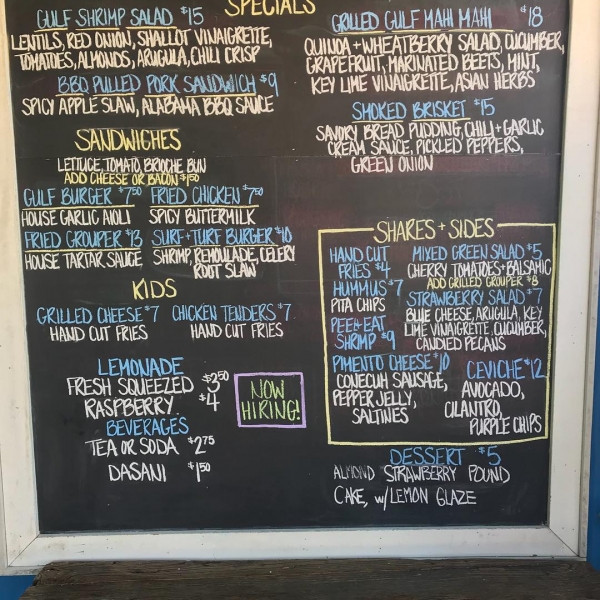 SPECIALS
GULF SHRIMP SALAD $15
LENTILS, RED ONION, SHALLOT VINAIGRETTE,
TOMATOES, ALMONDS, ARUGULA, CHILI CRISP
BBQ PULLED PORK SANDWICH $9
SPICY APPLE SLAW, ALABAMA BBQ SAUCE
GRILLED GULF MAHI MAHI $18
QUINOA + WHEATBERRY SALAD, CUCUMBER,
GRAPEFRUIT, MARINATED BEETS, MINT,
KEY LIME VINAIGRETTE, ASIAN HERBS
SMOKED BRISKET $15
SAVORY BREAD PUDDING, CHILI + GARLIC
CREAM SAUCE, PICKLED PEPPERS,
GREEN ONION
SANDWICHES
LETTUCE, TOMATO, BRIOCHE BUN
ADD CHEESE OR BACON $1.50
GULF BURGER $7.50
HOUSE GARLIC AIOLI
FRIED CHICKEN $7.50
SPICY BUTTERMILK
FRIED GROUPER $13
HOUSE TARTAR SAUCE
SURF + TURF BURGER $10
SHRIMP, REMOULADE, CELERY
ROOT SLAW
KIDS
GRILLED CHEESE $7
HAND CUT FRIES
CHICKEN TENDERS $7
HAND CUT FRIES
LEMONADE
FRESH SQUEEZED $3.50
RASPBERRY $4
BEVERAGES
TEA OR SODA $2.75
DASANI $1.50
NOW
HIRING!
SHARES + SIDES
HAND CUT
FRIES $4
HUMMUS $7
PITA CHIPS
PEEL + EAT
SHRIMP $9
PIMENTO CHEESE $10
CONECUH SAUSAGE,
PEPPER JELLY,
SALTINES
MIXED GREEN SALAD $5
CHERRY TOMATOES + BALSAMIC
ADD GRILLED GROUPER $8
STRAWBERRY SALAD $7
BLUE CHEESE, ARUGULA, KEY
LIME VINAIGRETTE, CUCUMBER,
CANDIED PECANS
CEVICHE $12
AVOCADO,
CILANTRO,
PURPLE CHIPS
DESSERT $5
ALMOND STRAWBERRY POUND
CAKE, w/ LEMON GLAZE